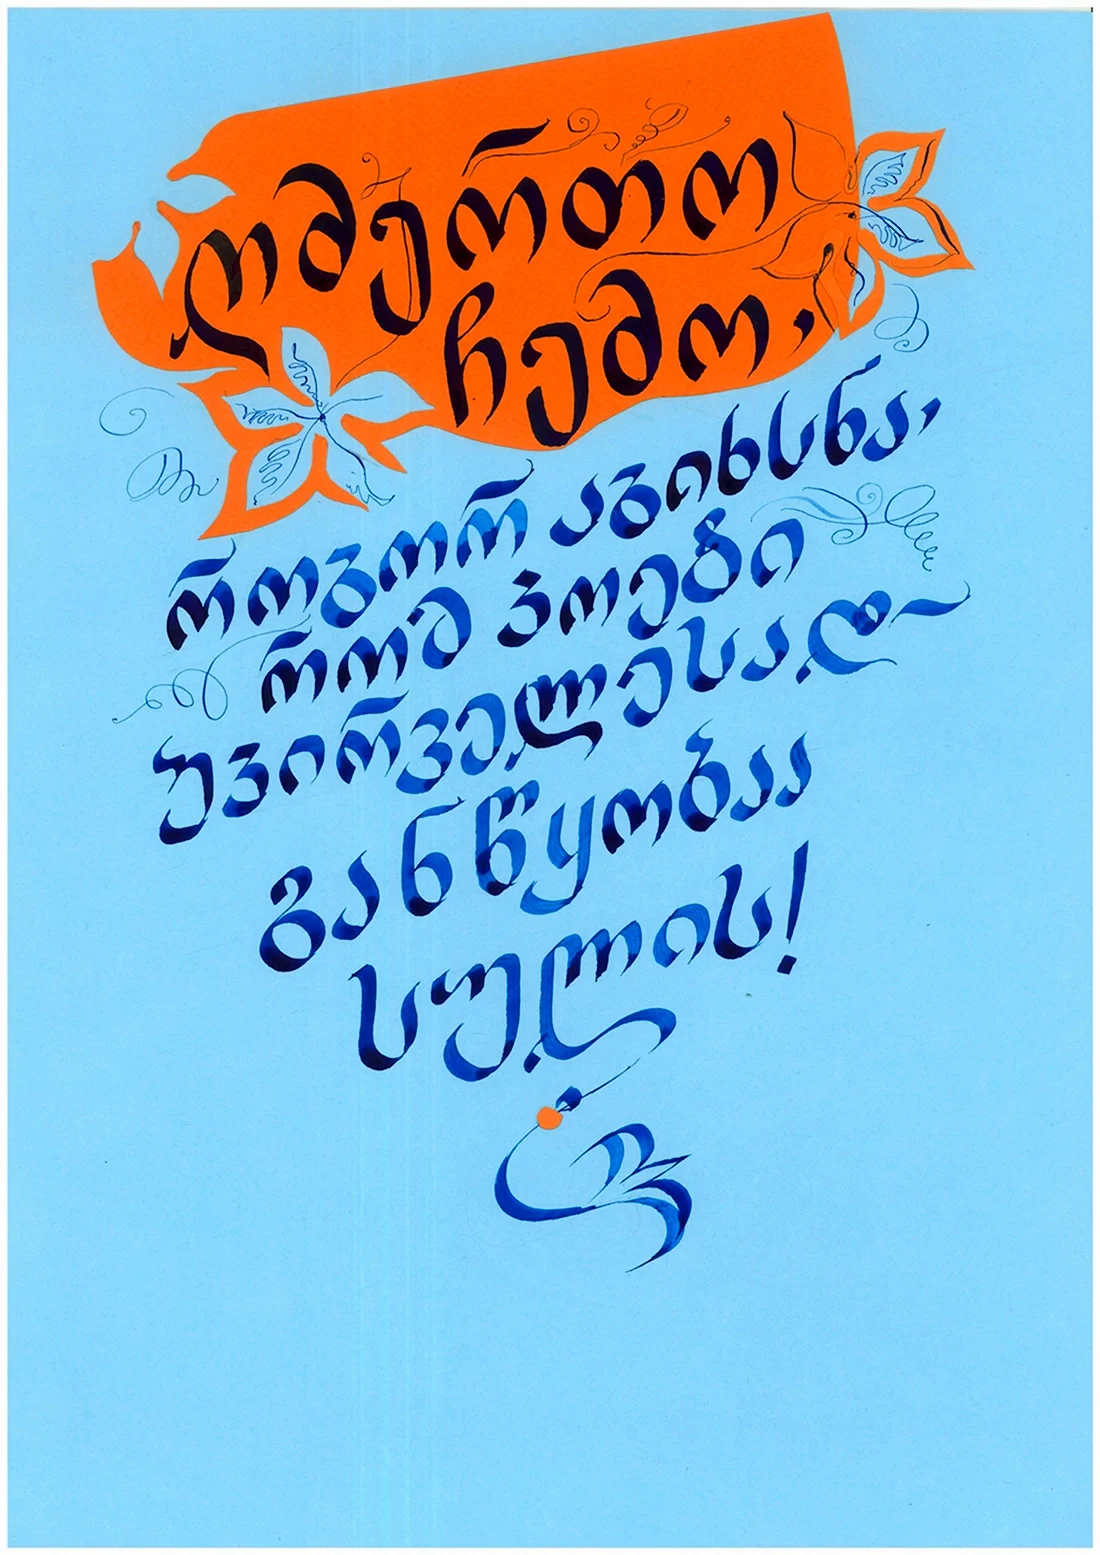 ღმერთო
ჩემო,
როგორ აგიხსნა,
რომ პოეტი
უპირველესად
განწყობაა
სულის!